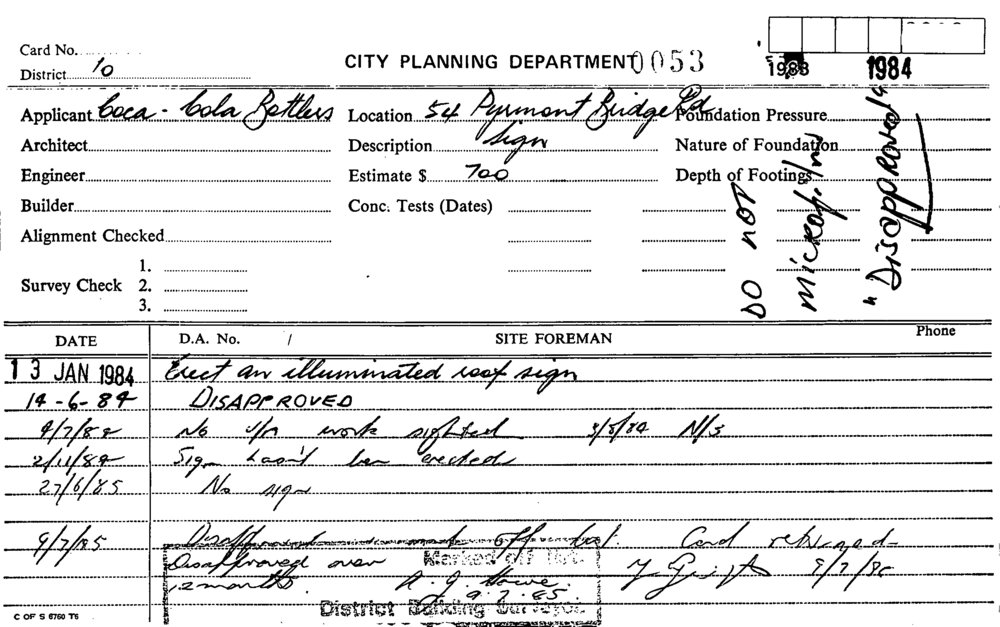 Card No.
District 10
CITY PLANNING DEPARTMENT 0053
1983 1984
Applicant Coca-Cola Bottlers
Location 54 Pyrmont Bridge Rd
Foundation Pressure
Architect
Description Sign
Nature of Foundation
Engineer
Estimate $ 700
Depth of Footings
Builder
Conc. Tests (Dates)
Alignment Checked
Survey Check
1.
2.
3.
DO NOT
Microfilm
"Disapproved"
DATE D.A. No. / SITE FOREMAN Phone
13 JAN 1984 Erect an illuminated roof sign
14-6-84 DISAPPROVED
4/7/84 No work sighted 3/8/84 N/S
2/11/84 Sign hasn't been erected
27/6/85 No sign
9/7/85 Disapproved mark off Card returned
Disapproved over Marked off
12 months. 9/7/85
9.7.85
District Building Surveyor
C OF S 6760 T6